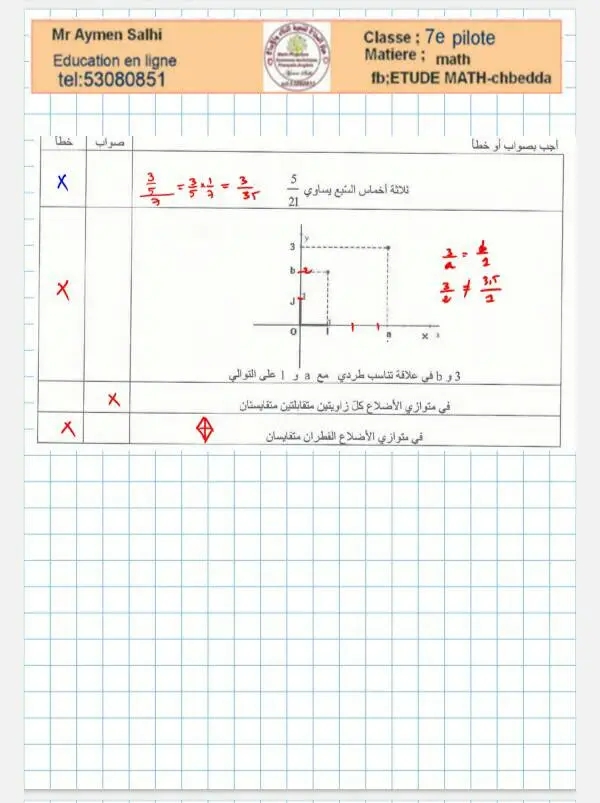 Mr Aymen Salhi
Education en ligne
tel:53080851
Classe ; 7e pilote
Matiere ; math
fb;ETUDE MATH-chbedda
أجب بصواب أو خطأ
صواب
خطأ
ثلاثة أخماس السّبع يساوي 5/21
(3/5)/7 = 3/5 × 1/7 = 3/35
X
y
3
b 2
J
O
I
a
x
3/a = b/1
3/2 ≠ 3,5/1
X
3 و b في علاقة تناسب طردي مع a و 1 على التوالي
في متوازي الأضلاع كلّ زاويتين متقابلتين متقايستان
X
في متوازي الأضلاع القطران متقايسان
X